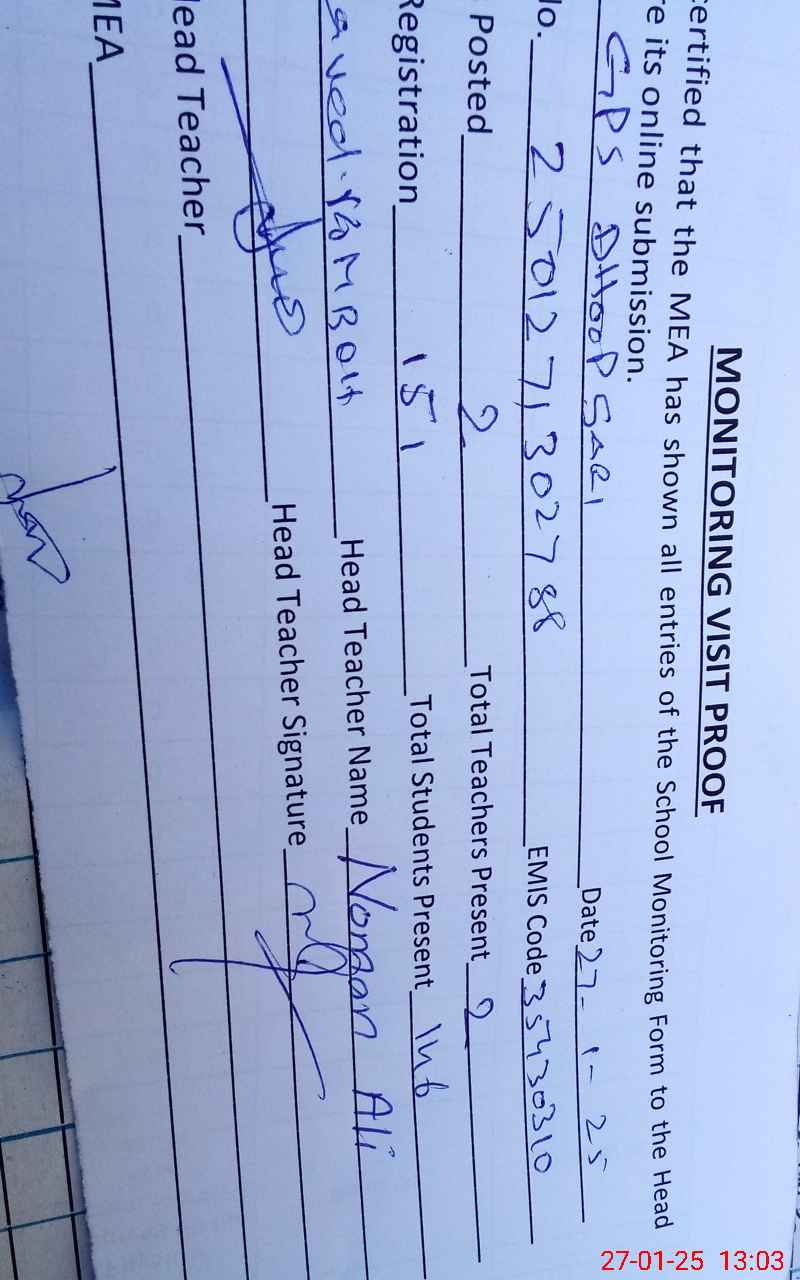 MONITORING VISIT PROOF
ertified that the MEA has shown all entries of the School Monitoring Form to the Head
re its online submission.
GPS DHOOP SARI Date 27-1-25
lo. 2501271302788 EMIS Code 35430310
Posted 2 Total Teachers Present 2
Registration 151 Total Students Present 146
Head Teacher Name Noman Ali
Head Teacher Signature
lead Teacher
MEA
27-01-25 13:03